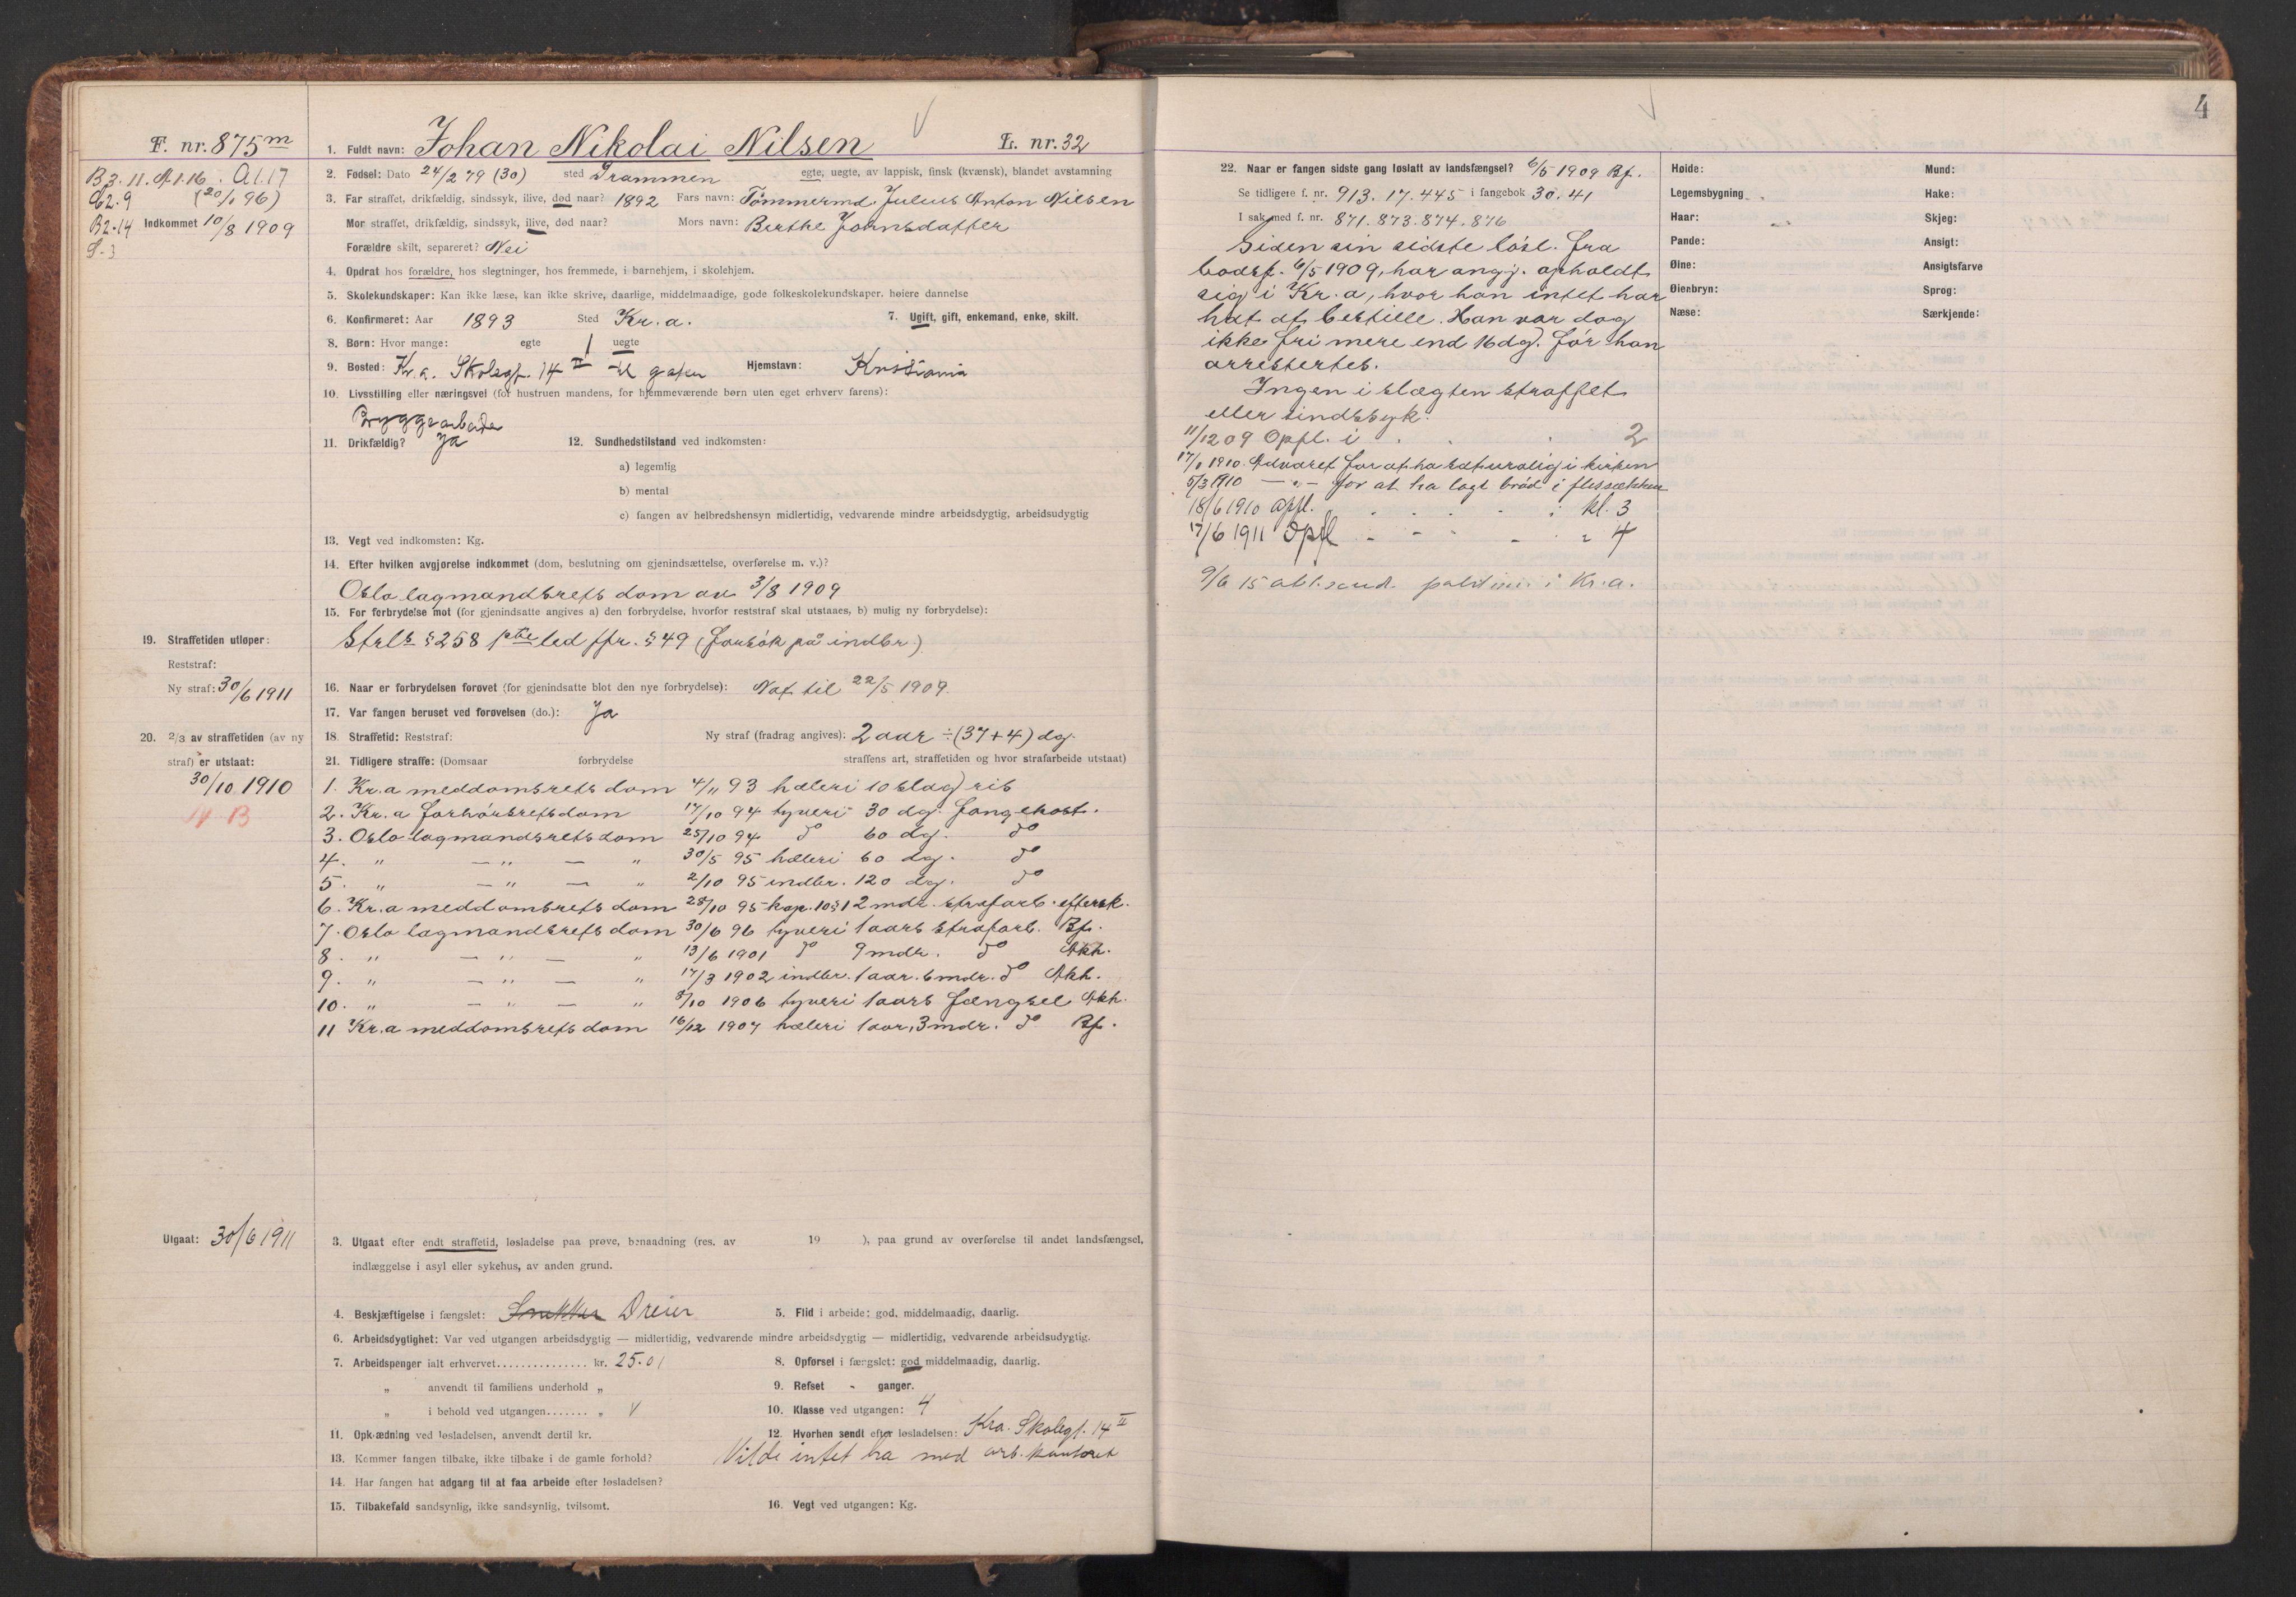 F. nr. 875 m
B3. 11. A. 1. 16. A1. 17
C2. 9 (20/1 96)
B2. 14 Indkommet 10/8 1909
S. 3
1. Fuldt navn: Johan Nikolai Nilsen L. nr. 32
2. Fødsel: Dato 24/2 79 (30) sted Drammen egte, uegte, av lappisk, finsk (kvænsk), blandet avstamning
3. Far straffet, drikfældig, sindssyk, ilive, død naar? 1892 Fars navn: Tømmermd. Julius Anton Nilsen
Mor straffet, drikfældig, sindssyk, ilive, død naar? Mors navn: Berthe Johnsdatter
Forældre skilt, separeret? Nei
4. Opdrat hos forældre, hos slegtninger, hos fremmede, i barnehjem, i skolehjem.
5. Skolekundskaper: Kan ikke læse, kan ikke skrive, daarlige, middelmaadige, gode folkeskolekundskaper. høiere dannelse
6. Konfirmeret: Aar 1893 Sted Kr.a. 7. Ugift, gift, enkemand, enke, skilt.
8. Børn: Hvor mange: egte 1 uegte
9. Bosted: Kr.a. Skolegt. 14 II til gaten Hjemstavn: Kristiania
10. Livsstilling eller næringsvei (for hustruen mandens, for hjemmeværende børn uten eget erhverv farens):
Bryggearbeider
11. Drikfældig? Ja 12. Sundhedstilstand ved indkomsten:
a) legemlig
b) mental
c) fangen av helbredshensyn midlertidig, vedvarende mindre arbeidsdygtig, arbeidsudygtig
13. Vegt ved indkomsten: Kg.
14. Efter hvilken avgjørelse indkommet (dom, beslutning om gjenindsættelse, overførelse m. v.)?
Oslo lagmandsrets dom av 3/8 1909
15. For forbrydelse mot (for gjenindsatte angives a) den forbrydelse, hvorfor reststraf skal utstaaes, b) mulig ny forbrydelse):
Strl. § 258 1ste led jfr. § 49 (forsøk på indbr.)
19. Straffetiden utløper:
Reststraf:
Ny straf: 30/6 1911
16. Naar er forbrydelsen forøvet (for gjenindsatte blot den nye forbrydelse): Nat til 22/5 1909.
17. Var fangen beruset ved forøvelsen (do.): Ja
20. 2/3 av straffetiden (av ny
straf) er utstaat:
30/10 1910
18. Straffetid: Reststraf: Ny straf (fradrag angives): 2 aar ÷ (37+4) dg.
21. Tidligere straffe: (Domsaar forbrydelse straffens art, straffetiden og hvor strafarbeide utstaat)
1. Kr.a meddomsrets dom 4/11 93 hæleri 10 slag ris
2. Kr.a forhørsrets dom 17/10 94 tyveri 30 dg. fangekost.
3. Oslo lagmandsrets dom 25/10 94 do 60 dg. do
4. " — " — " 30/5 95 hæleri 60 dg. do
5. " — " — " 2/10 95 indbr. 120 dg. do
6. Kr.a meddomsrets dom 28/10 95 kap. 10 § 1 2 mdr. strafarb. eftersk.
7. Oslo lagmandsrets dom 30/6 96 tyveri 1 aars strafarb. Bf.
8. " — " — " 13/6 1901 do 9 mdr. do Akh.
9. " — " — " 17/3 1902 indbr. 1 aar. 6 mdr. do Akh.
10. " — " — " 8/10 1906 tyveri 1 aars fængsel Akh.
11 Kr.a meddomsrets dom 16/12 1907 hæleri 1 aar, 3 mdr. do Bf.
Utgaat: 30/6 1911
3. Utgaat efter endt straffetid, løsladelse paa prøve, benaadning (res. av 19 ), paa grund av overførelse til andet landsfængsel,
indlæggelse i asyl eller sykehus, av anden grund.
4. Beskjæftigelse i fængslet: Snekker Dreier 5. Flid i arbeide: god, middelmaadig, daarlig.
6. Arbeidsdygtighet: Var ved utgangen arbeidsdygtig — midlertidig, vedvarende mindre arbeidsdygtig — midlertidig, vedvarende arbeidsudygtig.
7. Arbeidspenger ialt erhvervet............... kr. 25.01 8. Opførsel i fængslet: god middelmaadig, daarlig.
" anvendt til familiens underhold " 9. Refset - ganger.
" i behold ved utgangen....... " 10. Klasse ved utgangen: 4
11. Opklædning ved løsladelsen, anvendt dertil kr. 12. Hvorhen sendt efter løsladelsen: Kra. Skolegt. 14 II
13. Kommer fangen tilbake, ikke tilbake i de gamle forhold? Vilde intet ha med arb. kontoret
14. Har fangen hat adgang til at faa arbeide efter løsladelsen?
15. Tilbakefald sandsynlig, ikke sandsynlig, tvilsomt. 16. Vegt ved utgangen: Kg.
4
22. Naar er fangen sidste gang løslatt av landsfængsel? 6/5 1909 Bf.
Se tidligere f. nr. 913. 17. 445 i fangebok 30. 41
I sak med f. nr. 871. 873. 874. 876
Siden sin sidste løsl. fra
bodsf. 6/5 1909, har angj. opholdt
sig i Kr.a, hvor han intet har
hat at bestille. Han var dog
ikke fri mere end 16 dg. før han
arrestertes.
Ingen i slægten straffet
eller sindssyk.
11/12 09 Opfl. i 2
17/1 1910. Advaret for at ha været urolig i kirken
5/3 1910 — " — for at ha lagt brød i
18/6 1910 opfl. i kl. 3
17/6 1911 Opfl - - - - " 4
9/6 15 politim. i Kr.a.
Høide:
Legemsbygning
Haar:
Pande:
Øine:
Øienbryn:
Næse:
Mund:
Hake:
Skjeg:
Ansigt:
Ansigtsfarve
Sprog:
Særkjende: